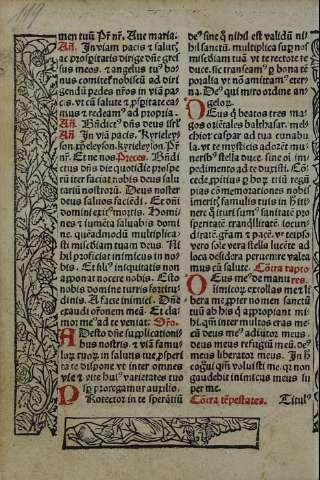 119
men tuū Pr̄ nr̄. Aue maria.
Añ. In viam pacis & salut᷒
ac prosp̄itatis dirige dn̄e gres
sus meos. & angelus tu⁹ bo
nus comitet̄ nobiscū ad diri
gendū pedes nr̄os in viā pa-
cis. vt cū salute & p̄speritate ea
mus & redeam⁹ ad propria.
Añ. Bn̄dict⁹ dn̄s deus isrl̄.
Añ. In viā pacis. Kyrieley-
son. xp̄eleyson. kyrieleyson. Pr̄
nr̄. Et ne nos Preces. Bn̄di
ctus dn̄s die quotidie prospe
rū iter faciat nobis deus salu
tariū nostrorū. Deus noster
deus saluos faciēdi. Et dn̄i
domini exit⁹ mortis. Homi
nes & iumēta saluabis domi
ne. quēadmodū multiplica-
sti misc̄diam tuam deus. Ni
hil proficiat inimicus in no-
bis. Et fili⁹ iniquitatis non
apponat nocere nobis. Esto
nobis domine turris fortitu
dinis. A facie inimici. Dn̄e
exaudi or̄onem meā. Et cla
mor me⁹ ad te veniat. Or̄o.
ADesto dn̄e supplicationi
bus nostris. & viā famu-
lorꝝ tuorꝝ in salutis tue p̄sperit
te dispone vt inter omnes
vie & vite hui⁹ varietates tuo
semp̄ protegamur auxilio. P
Rotector in te sperātiū
de⁹ sine q̄ nihil est validū ni
hil sanctū. multiplica sup̄ nos
misc̄diam tuā vt te rectore te
duce. sic transeam⁹ p̄ bona tē
poralia vt nō amittam⁹ eter-
na. De⁹ qui miro ordine an
gelorꝝ.
DEus q̄ beatos tres ma-
gos oriētales balthasar. mel
chior caspar ad tua cunabu
la. vt te mysticis adorēt mu-
nerib⁹ stella duce. sine oi im-
pedimento ad te duxisti. Cō
cede
inerit⁹. famulis tuis in h̄ iti
nere
speritate. tranq̄llitate. iocun-
ditate.
vero sole vera stella luc̄ete ad
loca desiderata peruenire valea
mus cū salute. Cōtra raptores.
DEus me⁹ de manu
inimicorꝝ
bera me
ab his q̄ appropiant mi-
hi. q̄m inter multos eras me-
cū deus me⁹ adiutor meus.
deus meus refugiū meū. de⁹
meus liberator meus. In h̄
cogui qm̄ voluisti me. q̄r non
gaudebit inimicus meus su
per me.
Cōtra tēpestates. Titul⁹